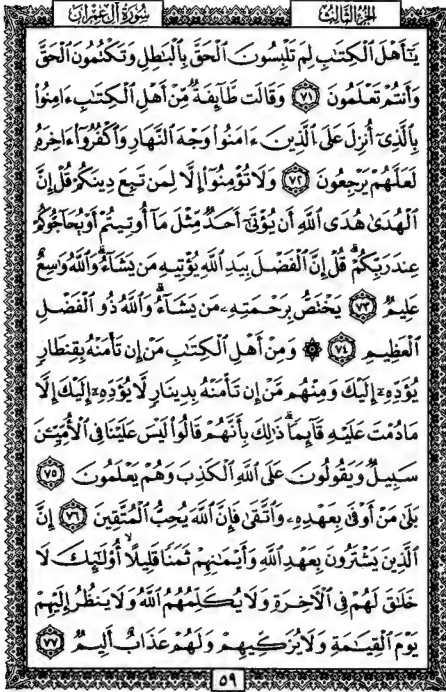 سُورَةُ آلِ عِمْرَانَ الجُزْءُ الثَّالِثُ
يَٰٓأَهْلَ ٱلْكِتَٰبِ لِمَ تَلْبِسُونَ ٱلْحَقَّ بِٱلْبَٰطِلِ وَتَكْتُمُونَ ٱلْحَقَّ
وَأَنتُمْ تَعْلَمُونَ ٧١ وَقَالَت طَّآئِفَةٌ مِّنْ أَهْلِ ٱلْكِتَٰبِ ءَامِنُوا۟
بِٱلَّذِىٓ أُنزِلَ عَلَى ٱلَّذِينَ ءَامَنُوا۟ وَجْهَ ٱلنَّهَارِ وَٱكْفُرُوٓا۟ ءَاخِرَهُۥ
لَعَلَّهُمْ يَرْجِعُونَ ٧٢ وَلَا تُؤْمِنُوٓا۟ إِلَّا لِمَن تَبِعَ دِينَكُمْ قُلْ إِنَّ
ٱلْهُدَىٰ هُدَى ٱللَّهِ أَن يُؤْتَىٰٓ أَحَدٌ مِّثْلَ مَآ أُوتِيتُمْ أَوْ يُحَآجُّوكُمْ
عِندَ رَبِّكُمْ ۗ قُلْ إِنَّ ٱلْفَضْلَ بِيَدِ ٱللَّهِ يُؤْتِيهِ مَن يَشَآءُ ۗ وَٱللَّهُ وَٰسِعٌ
عَلِيمٌ ٧٣ يَخْتَصُّ بِرَحْمَتِهِۦ مَن يَشَآءُ ۗ وَٱللَّهُ ذُو ٱلْفَضْلِ
ٱلْعَظِيمِ ٧٤ ۞ وَمِنْ أَهْلِ ٱلْكِتَٰبِ مَنْ إِن تَأْمَنْهُ بِقِنطَارٍ
يُؤَدِّهِۦٓ إِلَيْكَ وَمِنْهُم مَّنْ إِن تَأْمَنْهُ بِدِينَارٍ لَّا يُؤَدِّهِۦٓ إِلَيْكَ إِلَّا
مَا دُمْتَ عَلَيْهِ قَآئِمًا ۗ ذَٰلِكَ بِأَنَّهُمْ قَالُوا۟ لَيْسَ عَلَيْنَا فِى ٱلْأُمِّيِّۦنَ
سَبِيلٌ وَيَقُولُونَ عَلَى ٱللَّهِ ٱلْكَذِبَ وَهُمْ يَعْلَمُونَ ٧٥
بَلَىٰ مَنْ أَوْفَىٰ بِعَهْدِهِۦ وَٱتَّقَىٰ فَإِنَّ ٱللَّهَ يُحِبُّ ٱلْمُتَّقِينَ ٧٦ إِنَّ
ٱلَّذِينَ يَشْتَرُونَ بِعَهْدِ ٱللَّهِ وَأَيْمَٰنِهِمْ ثَمَنًا قَلِيلًا أُو۟لَٰٓئِكَ لَا
خَلَٰقَ لَهُمْ فِى ٱلْءَاخِرَةِ وَلَا يُكَلِّمُهُمُ ٱللَّهُ وَلَا يَنظُرُ إِلَيْهِمْ
يَوْمَ ٱلْقِيَٰمَةِ وَلَا يُزَكِّيهِمْ وَلَهُمْ عَذَابٌ أَلِيمٌ ٧٧
٥٩